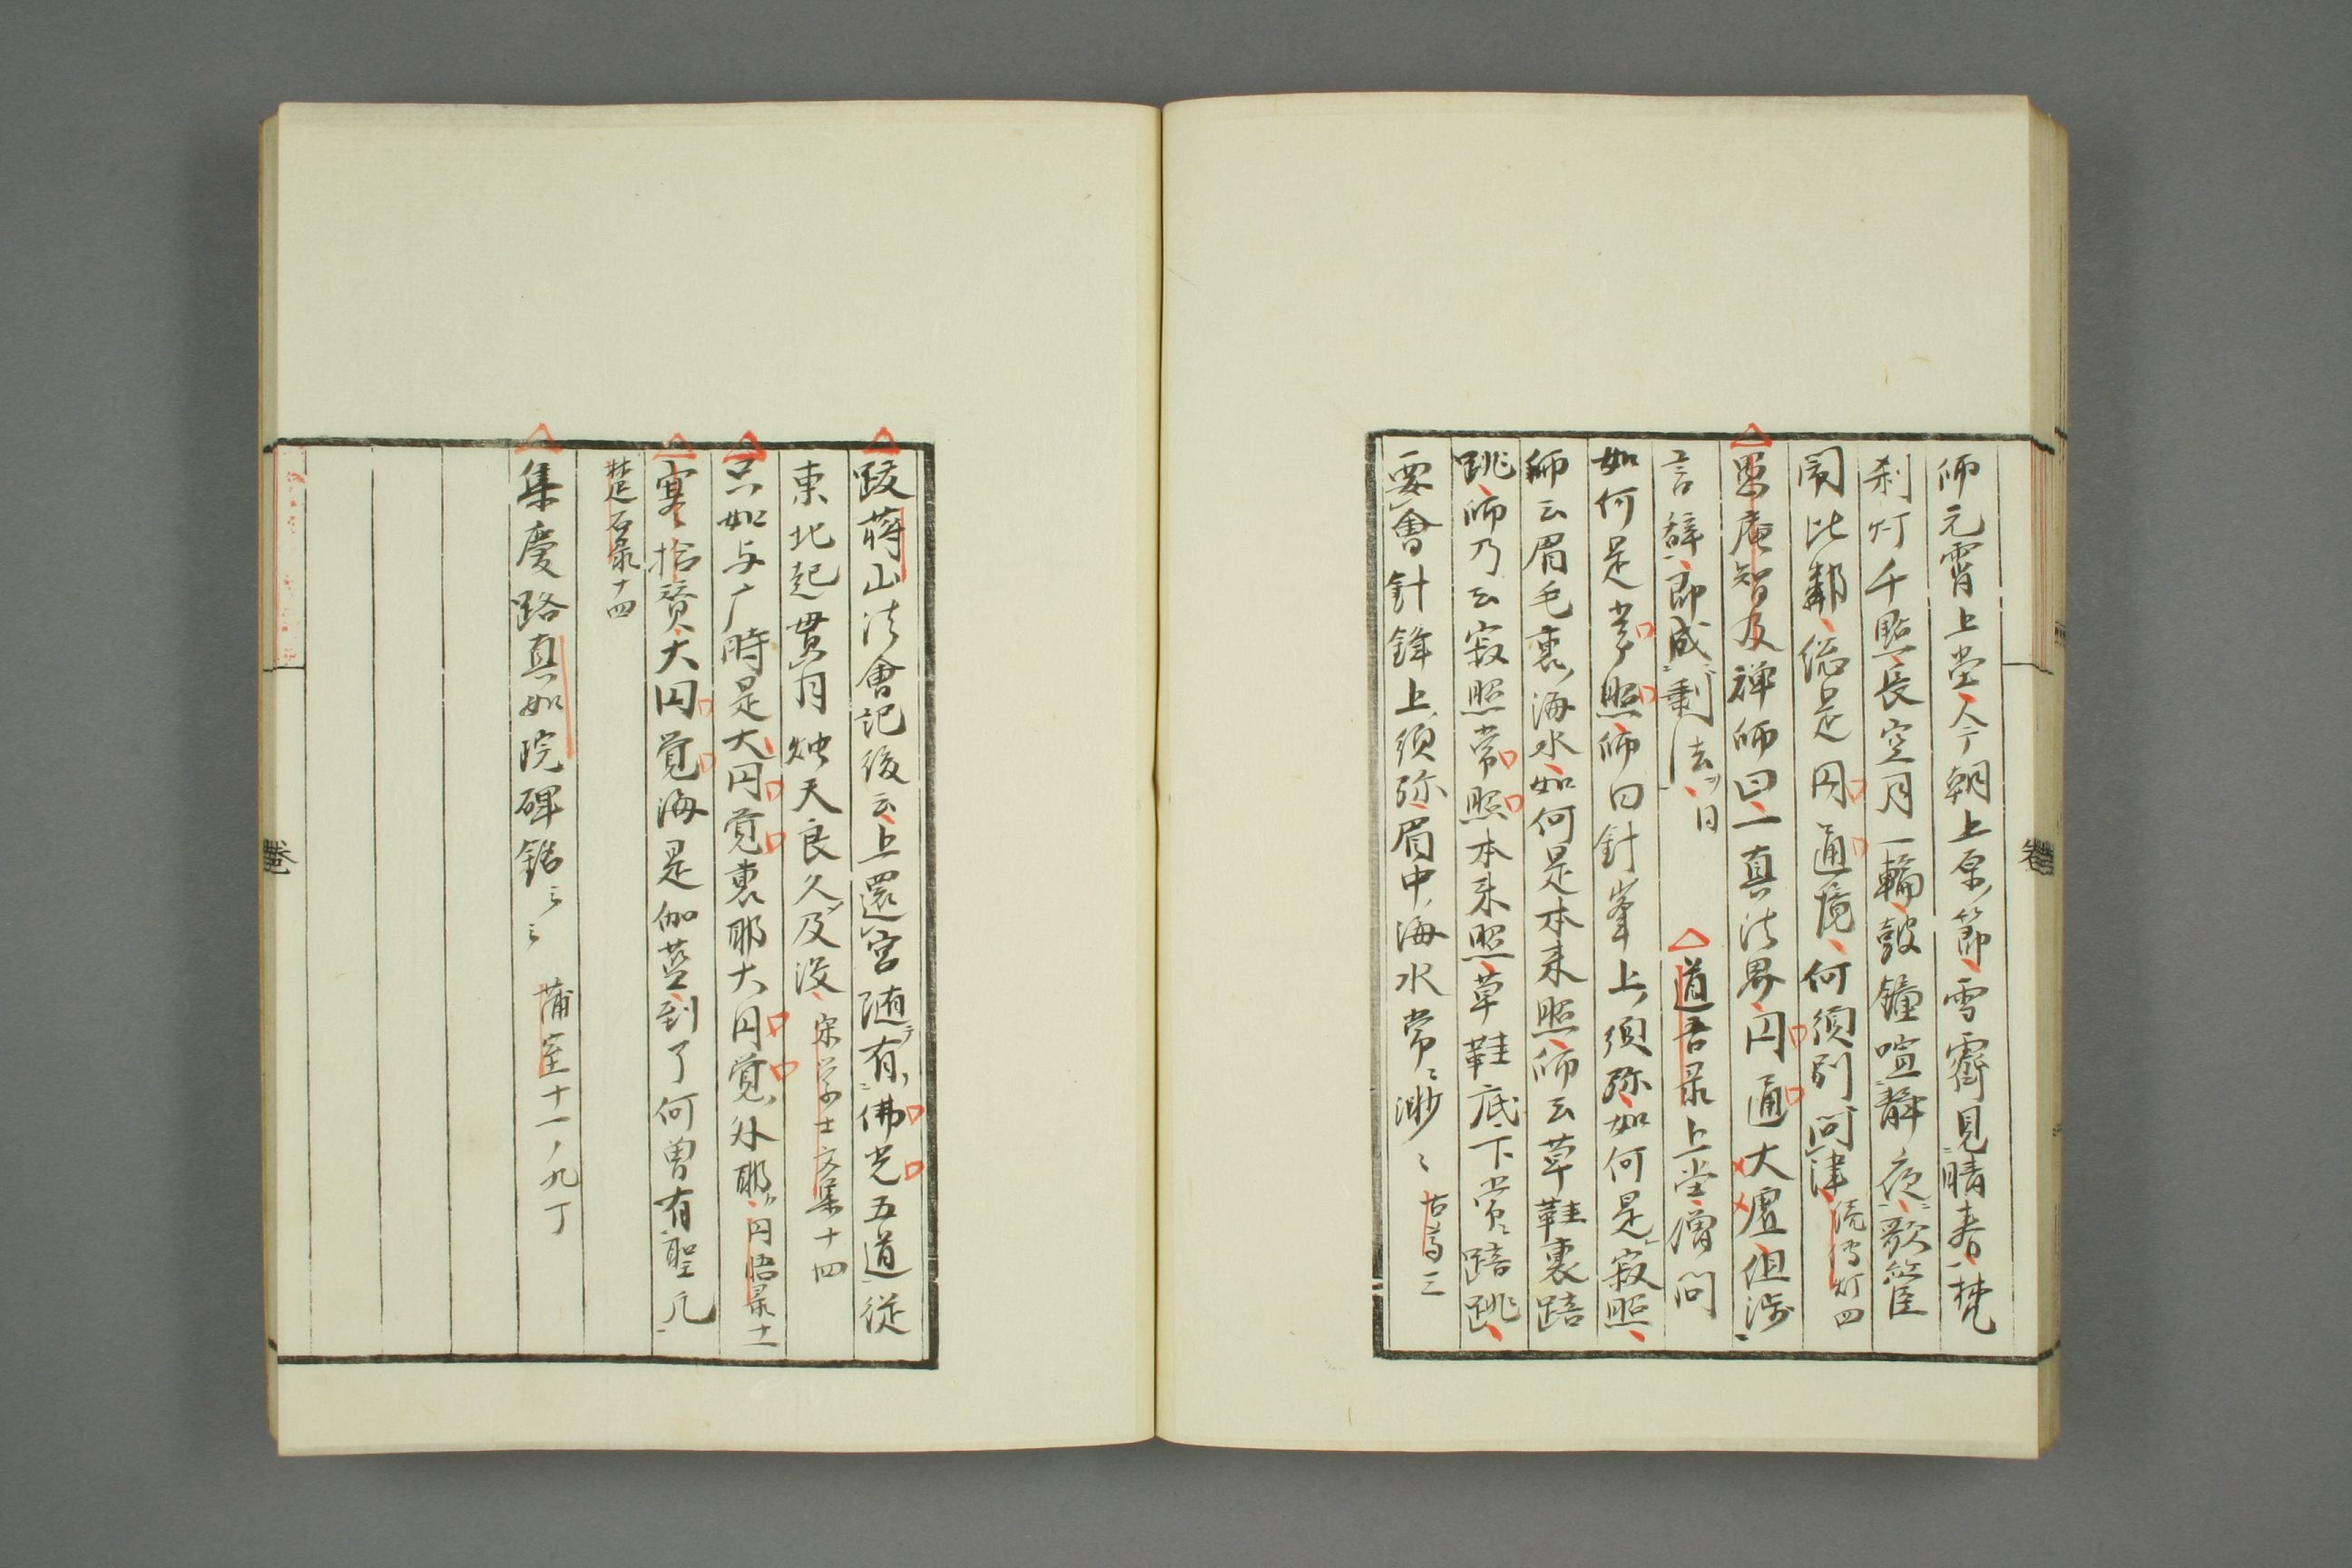 师元宵上堂今朝上原節雪霽見晴春梵
刹灯千點長空月一輪皷鐘喧靜夜歌管
鬧比鄰總是円通境何須別問津 続傳灯四
愚庵智及禅师曰一真法界円通大虚但涉
言辞即成剩法 道吾录上堂僧問
如何是常照师曰針峯上須弥如何是寂照
师云眉毛裏海水如何是本来照师云草鞋裏踣
跳师乃云寂照常照本来照草鞋底下常踣跳
要會針鋒上須弥眉中海水常渺〻 古尊三
跋蒋山法會記後云上還宮随有佛光五道従
東北起貫月烛天良久及没 宋学士文集十四
只如与广時是大円覚裏耶大円覚外耶 円悟录十一
寞〻拾賛大円覚海是伽藍到了何曽有聖凡
楚石录十四
集慶路真如院碑銘 蒲室十一ノ九丁
卷
卷